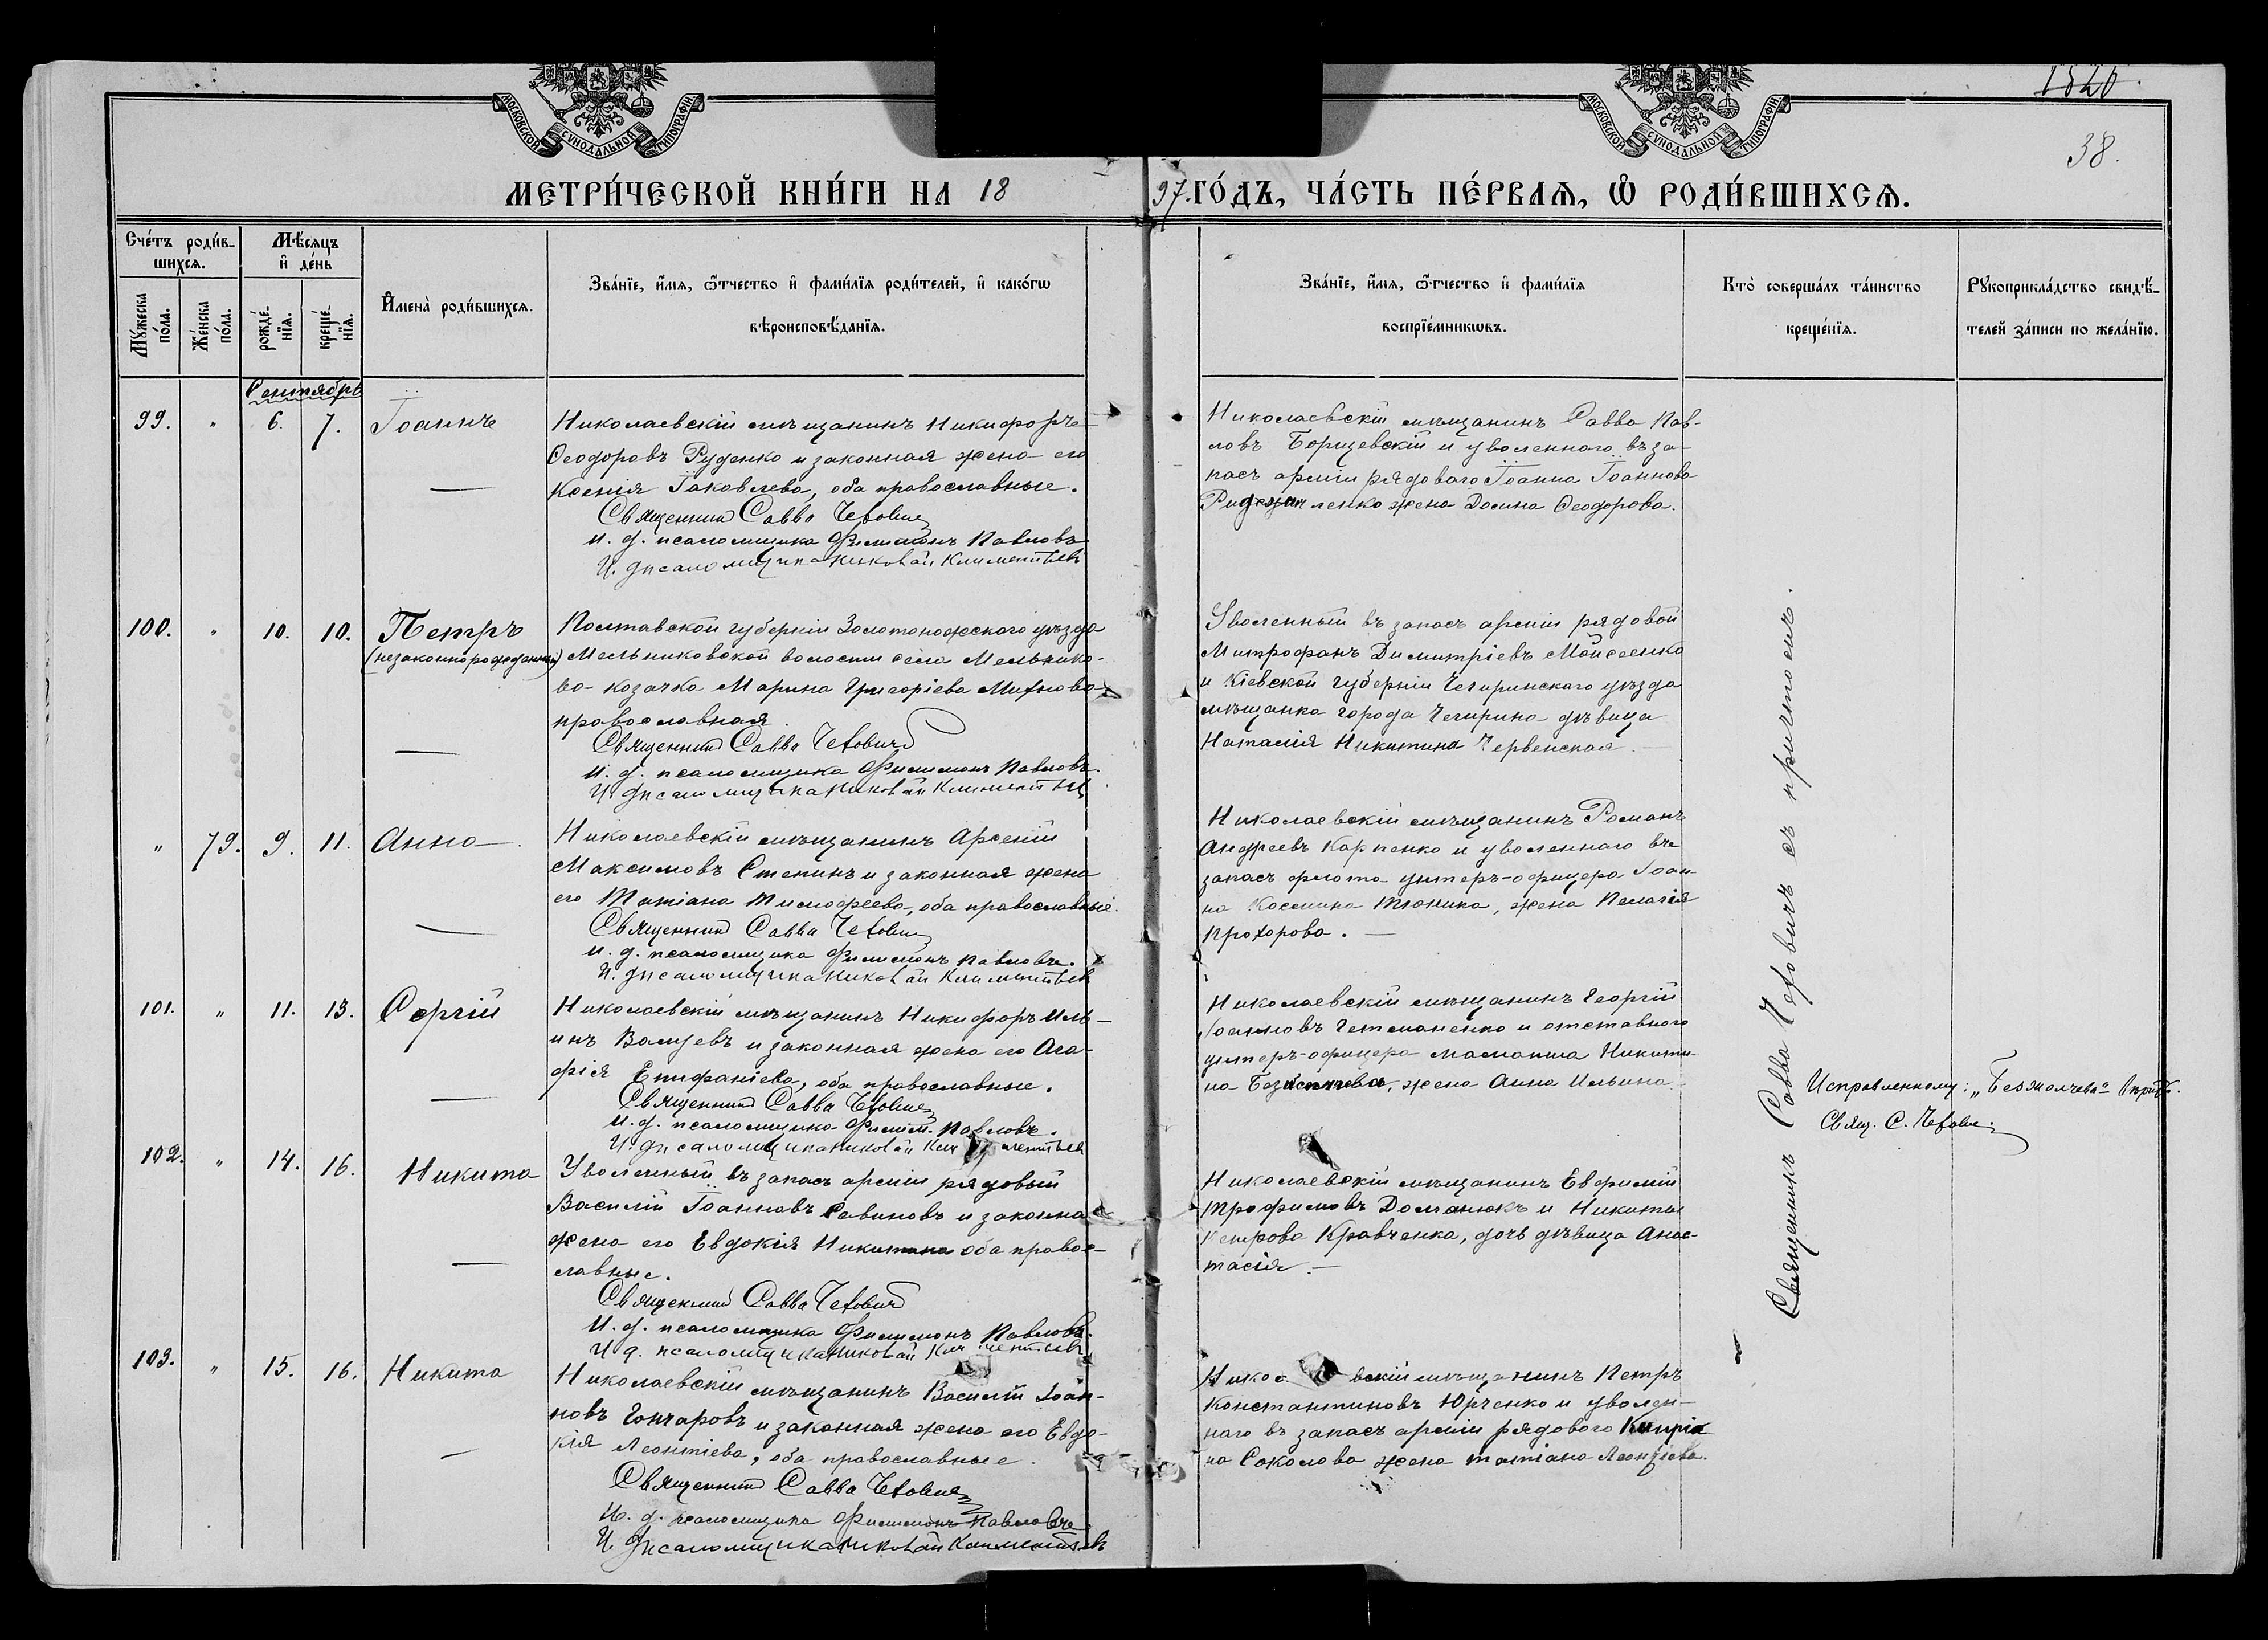 МОСКОВСКОЙ СѴНОДАЛЬНОЙ ТИПОГРАФІИ.
МОСКОВСКОЙ СѴНОДАЛЬНОЙ ТИПОГРАФІИ.
38.
МЕТРИ́ЧЕСКОЙ КНИ́ГИ НА 18 97. ГО́ДЪ, ЧА́СТЬ ПЕ́РВАѦ, Ѡ҆ РОДИ́ВШИХСѦ.
Сче́тъ роди́в-
шихсѧ.
Мѣ́сѧцъ
и҆ де́нь
Мꙋ́жеска
по́ла.
Же́нска
по́ла.
рожде́-
нїѧ.
креще́-
нїѧ.
И҆мена̀ роди́вшихсѧ.
Зва́нїе, и҆́мѧ, ѻ҆́тчество и҆ фами́лїѧ роди́телей, и҆ како́гѡ
вѣроисповѣ́данїѧ.
Зва́нїе, и҆́мѧ, ѻ҆́тчество и҆ фами́лїѧ
воспрїе́мникѡвъ.
Кто̀ соверша́лъ та́инство
креще́нїѧ.
Рꙋкоприкла́дство свидѣ́-
телей за́писи по жела́нїю.
Сентябрь
99. " 6. 7. Іоаннъ
Николаевскій мѣщанинъ Никифоръ
Ѳеодоровъ Руденко и законная жена его
Ксенія Іаковлева, оба православные.
Священникъ Савва Чехович
И. д. псаломщика Филимонъ Павловъ
И. д. псаломщика Николай Климентьевъ
Николаевскій мѣщанинъ Савва Пав-
ловъ Борщевскій и уволеннаго въ за-
пасъ арміи рядоваго Іоанна Іоаннова
ленко жена Домна Ѳеодорова.
100. " 10. 10. Петръ
(незаконнорожденный)
Полтавской губерніи Золотоношскаго уѣзда
Мельниковской волости села Мельнико-
ва козачка Марина Григоріева Михнова
православная.
Священникъ Савва Чеховичъ
И. д. псаломщика Филимонъ Павловъ.
И. д. псаломщика Николай Климентьев
Уволенный въ запасъ арміи рядовой
Митрофанъ Димитріевъ Мойсеенко
и Кіевской губерніи Чегиринскаго уѣзда
мѣщанка города Чегирина дѣвица
Наталія Никитина Червенская.
" 79. 9. 11. Анна.
Николаевскій мѣщанинъ Арсеній
Максимовъ Степинъ и законная жена
его Татіана Тимофеева, оба православные.
Священникъ Савва Чехович
И. д. псаломщика Филимонъ Павловъ.
И. д. псаломщика Николай Климентьев
Николаевскій мѣщанинъ Романъ
Андреевъ Карпенко и уволеннаго въ
запасъ флота унтеръ-офицера Іоан-
на Космина Тюника, жена Пелагія
Прохорова.
101. " 11. 13. Сергій
Николаевскій мѣщанинъ Никифоръ Иль-
инъ Валуевъ и законная жена его Ага-
фія Епифаніева, оба православные.
Священникъ Савва Чехович
И. д. псаломщика Филим. Павловъ.
И. д. псаломщика Николай Климентьев
Николаевскій мѣщанинъ Георгій
Іоанновъ Гетманенко и отставного
унтеръ-офицера Никити-
на жена Анна Ильина.
Исправленному: „Безмолчева" вѣрить.
Свящ. С. Чехович
102. " 14. 16. Никита
Уволенный въ запасъ арміи рядовый
Василій Іоанновъ Савиновъ и законна
жена его Евдокія Никитина оба право-
славные.
Священникъ Савва Чехович
И. д. псаломщика Филимонъ Павловъ.
И. д. псаломщика Николай Климентьевъ
Николаевскій мѣщанинъ Евфимій
Трофимовъ Доманюкъ и Никиты
Петрова Кравченка, дочь дѣвица Анас-
тасія.
103. " 15. 16. Никита
Николаевскій мѣщанинъ Василій Іоан-
новъ Гончаровъ и законная жена его Евдо-
кія Леонтіева, оба православные.
Священникъ Савва Чехович
И. д. псаломщика Филимонъ Павловъ
И. д. псаломщика Николай Климентьевъ
Никол вскій мѣщанинъ Петръ
Константиновъ Юрченко и уволен-
наго въ запасъ арміи рядового Кипріа
на Соколова жена Татіана Леонтіева.
Священникъ Савва Чеховичъ съ причтомъ.